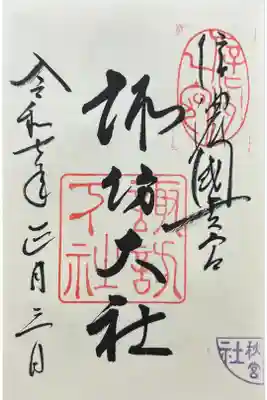 信濃國一之宮
諏訪大社
諏訪大社
令和七年正月三日
秋宮
社